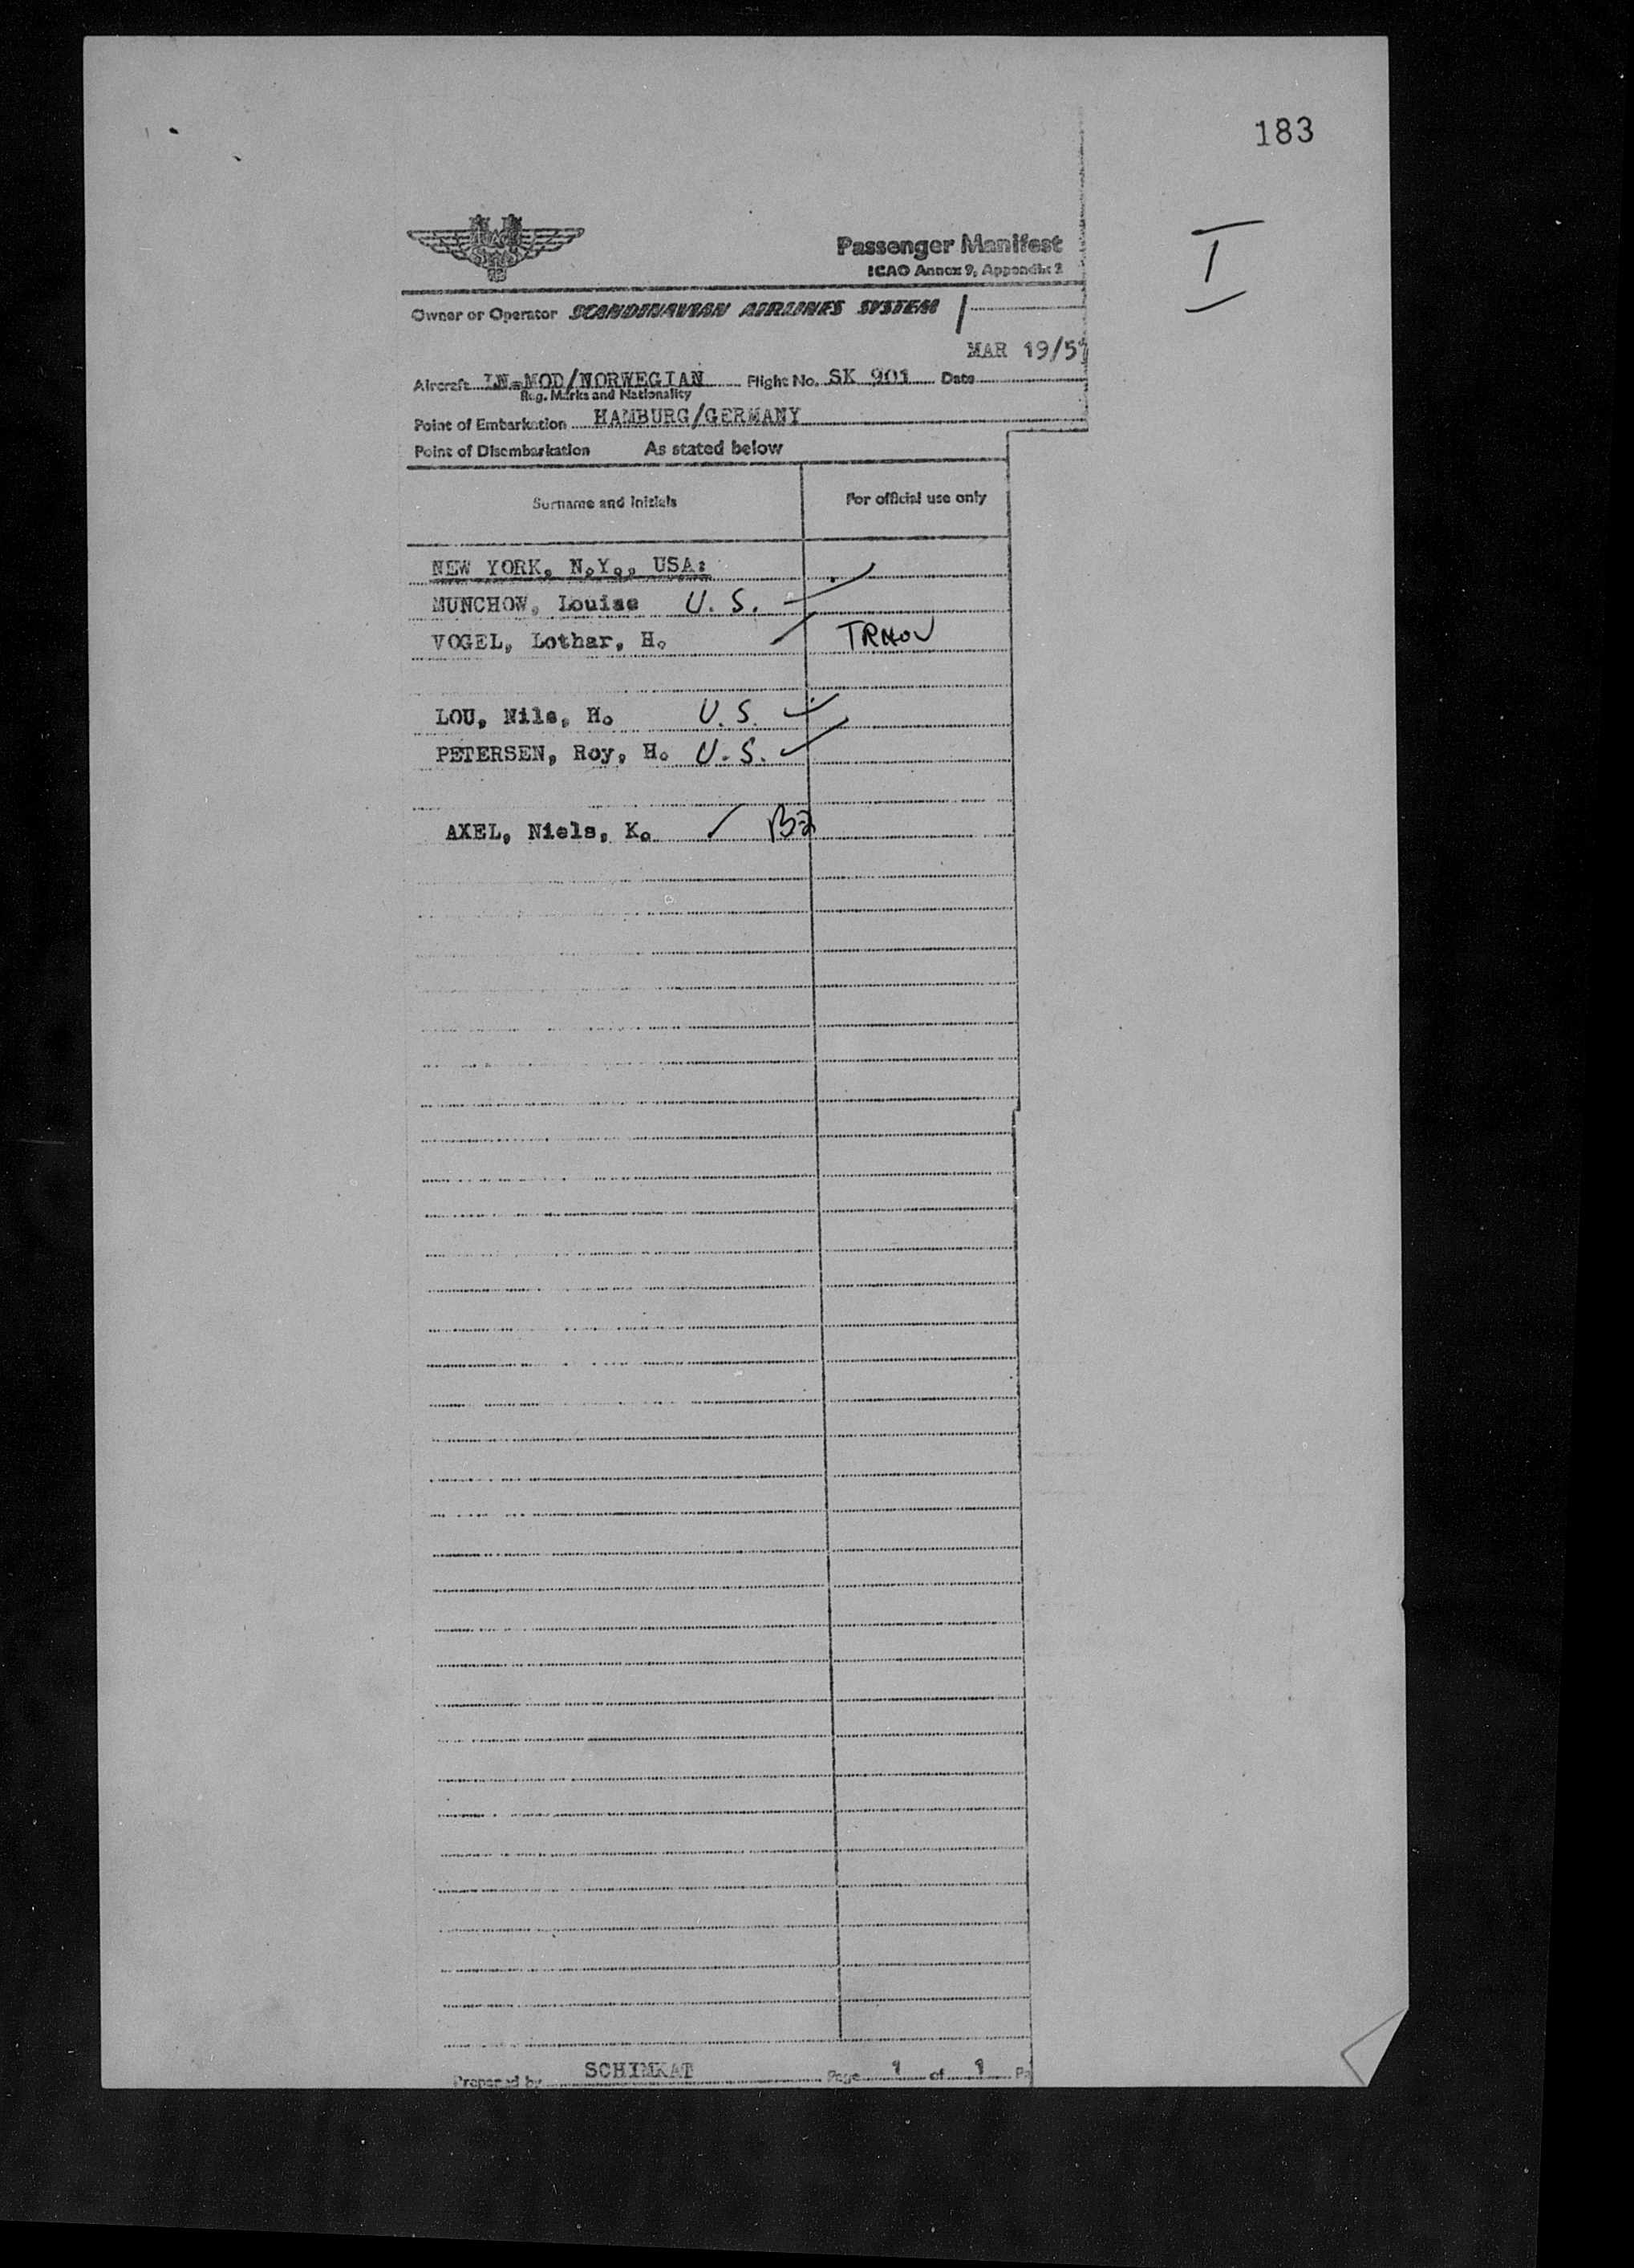 183
I
Passenger Manifest
ICAO Annex 9, Appendix 2
Owner or Operator SCANDINAVIAN AIRLINES SYSTEM
MAR 19/5
Aircraft LN-MOD/NORWEGIAN Flight No. SK 901 Date
Reg. Marks and Nationality
Point of Embarkation HAMBURG/GERMANY
Point of Disembarkation As stated below
Surname and initials For official use only
NEW YORK, N.Y., USA:
MUNCHOW, Louise U.S.
VOGEL, Lothar, H.
LOU, Nils, H. U.S.
PETERSEN, Roy, H. U.S.
AXEL, Niels, K. B2
Prepared by SCHIMKAT Page 1 of 1